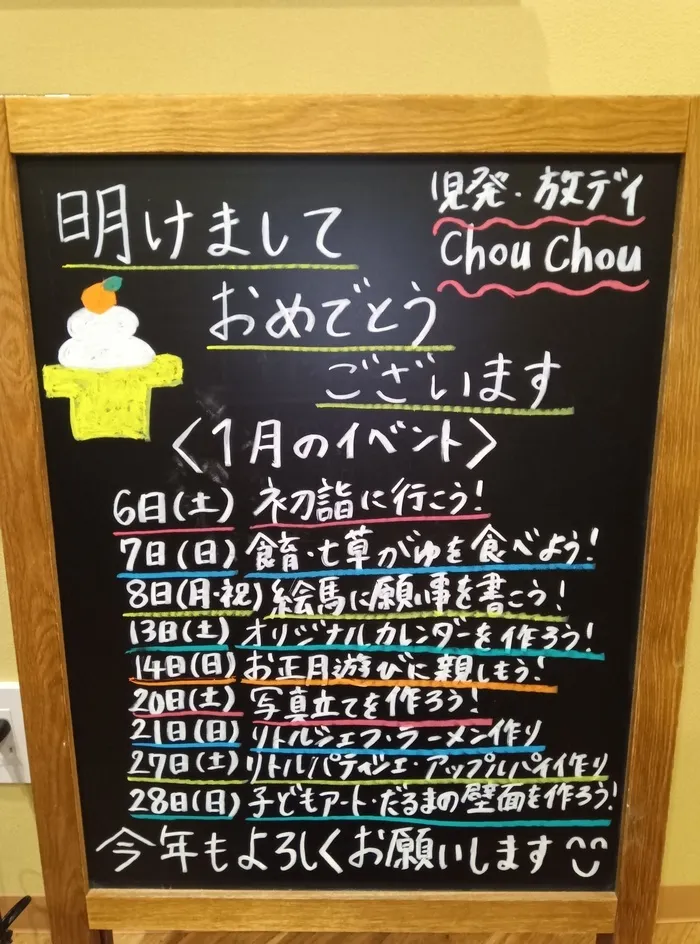 児発・放デイ
Chou Chou
明けまして
おめでとう
ございます
〈1月のイベント〉
6日(土) 初詣に行こう!
7日(日) 食育・七草がゆを食べよう!
8日(月・祝) 絵馬に願い事を書こう!
13日(土) オリジナルカレンダーを作ろう!
14日(日) お正月遊びに親しもう!
20日(土) 写真立てを作ろう!
21日(日) リトルシェフ・ラーメン作り
27日(土) リトルパティシエ・アップルパイ作り
28日(日) 子どもアート・だるまの壁面を作ろう!
今年もよろしくお願いします